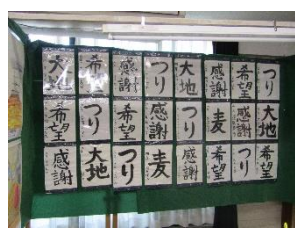 大地 希望 感謝 つり 大地 感謝 希望 つり
希望 つり 希望 感謝 つり 麦 感謝 大地
感謝 大地 つり 麦 感謝 希望 つり 希望